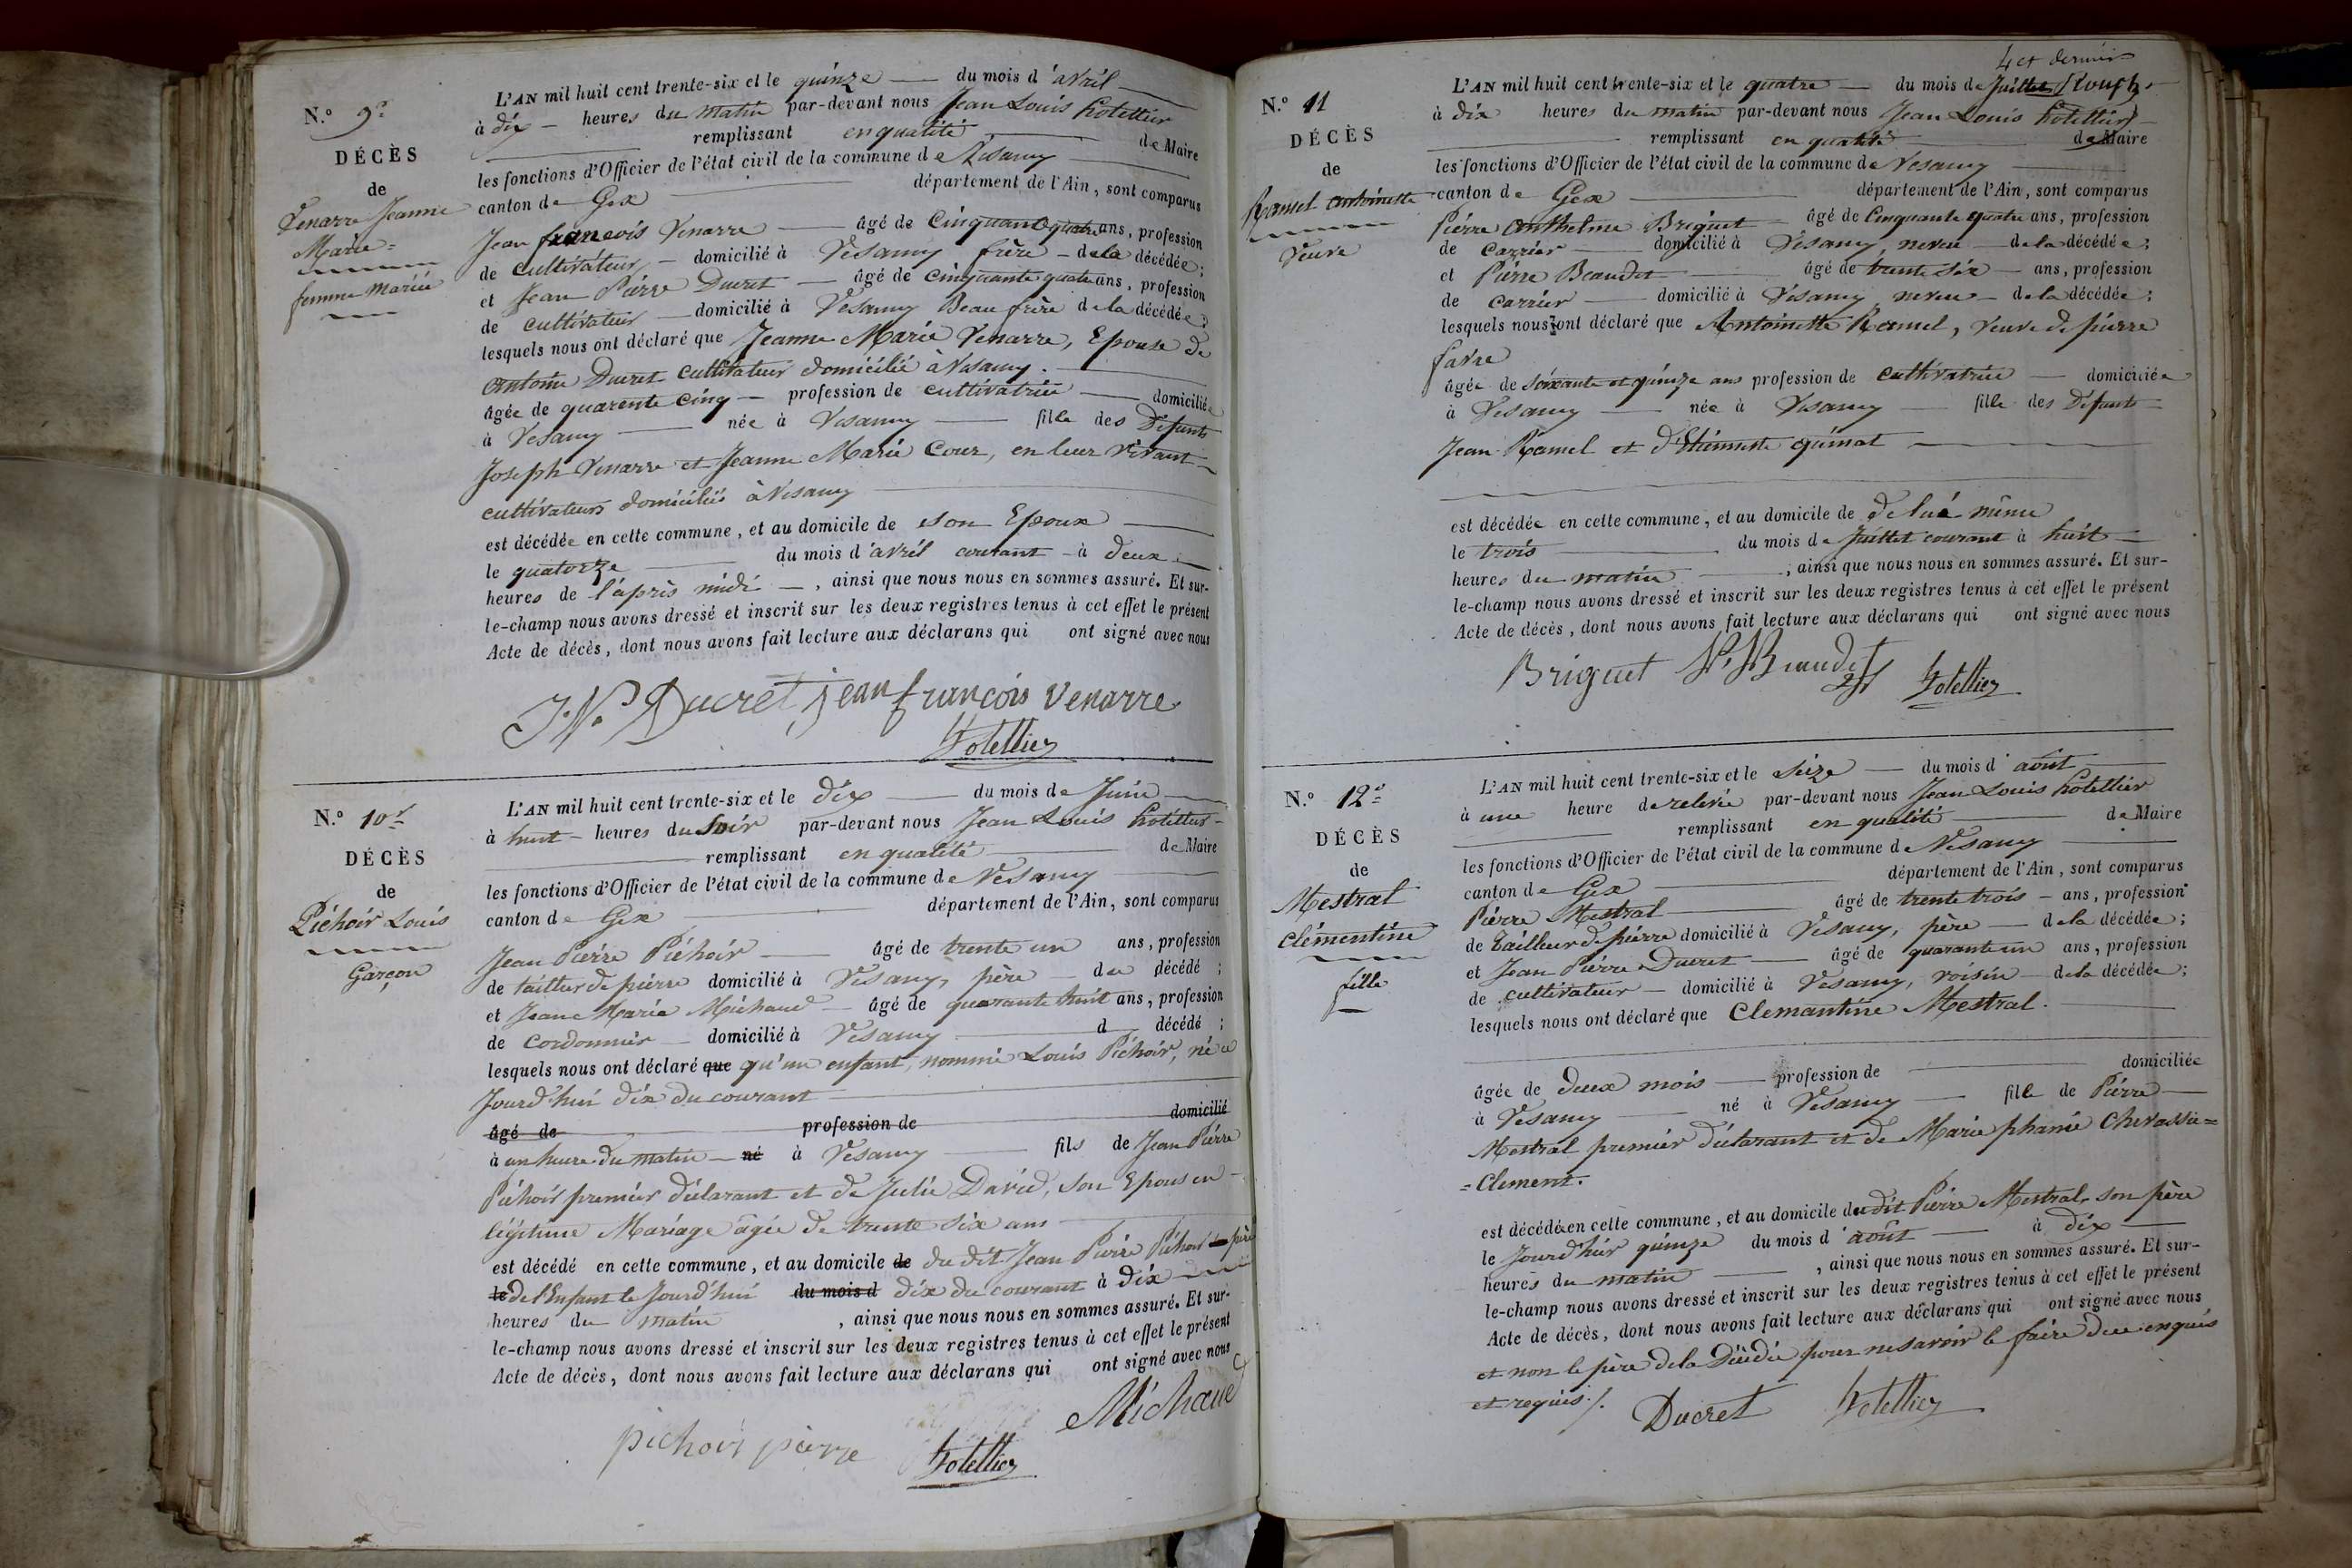 N.º 9.e
DÉCÈS
de
Venarre Jeanne
Marie =
femme Mariée
L'AN mil huit cent trente-six et le quinze du mois d'avril
à dix heures du matin par-devant nous Jean Louis hotellier
remplissant en qualité de Maire
les fonctions d'Officier de l'état civil de la commune de Vesancy
canton de Gex département de l'Ain, sont comparus
Jean françois Venarre âgé de Cinquante quatre ans, profession
de cultivateur, domicilié à Vesancy frère de la décédée;
et Jean Pierre Ducret âgé de cinquante quatre ans, profession
de cultivateur domicilié à Vesancy Beau frère de la décédée;
lesquels nous ont déclaré que Jeanne Marie Venarre, Epouse de
Antoine Ducret cultivateur domicilié à Vesancy.
âgée de quarente cinq profession de cultivatrice domiciliée
à Vesancy née à Vesancy fille des Défunts
Joseph Venarre et Jeanne Marie Cour, en leur vivant
cultivateurs domiciliés à Vesancy
est décédée en cette commune, et au domicile de son Epoux
le quatorze du mois d'avril courant à deux
heures de l'après midi, ainsi que nous nous en sommes assuré. Et sur-
le-champ nous avons dressé et inscrit sur les deux registres tenus à cet effet le présent
Acte de décès, dont nous avons fait lecture aux déclarans qui ont signé avec nous
J. P. Ducret jean françois venarre
hotellier
N.º 10.e
DÉCÈS
de
Pichoir Louis
Garçon
L'AN mil huit cent trente-six et le dix du mois de Juin
à huit heures du Soir par-devant nous Jean Louis hotellier
remplissant en qualité de Maire
les fonctions d'Officier de l'état civil de la commune de Vesancy
canton de Gex département de l'Ain, sont comparus
Jean Pierre Pichoir âgé de trente un ans, profession
de tailleur de pierre domicilié à Vesancy, père du décédé;
et Jean Marie Michaud âgé de quarante huit ans, profession
de Cordonnier domicilié à Vesancy d décédé;
lesquels nous ont déclaré que qu'un enfant, nommé Louis Pichoir, né a
Jourd'hui dix du courant
âgé de profession de domicilié
à un heure du matin né à Vesancy fils de Jean Pierre
Pichoir premier déclarant et de Julie David, son Epous en
légitime Mariage agée de trente six ans
est décédé en cette commune, et au domicile de du dit Jean Pierre Pichoir père
le de l'Enfant le Jourd'hui du mois d dix du courant à dix
heures du matin, ainsi que nous nous en sommes assuré. Et sur-
le-champ nous avons dressé et inscrit sur les deux registres tenus à cet effet le présent
Acte de décès, dont nous avons fait lecture aux déclarans qui ont signé avec nous
Michaud
pichoir pierre
hotellier
4 et dernier
N.º 11
DÉCÈS
de
Ramel antoinette
Veuve
L'AN mil huit cent trente-six et le quatre du mois de Juillet
à dix heures du matin par-devant nous Jean Louis hotellier
remplissant en qualité de Maire
les fonctions d'Officier de l'état civil de la commune de Vesancy
canton de Gex département de l'Ain, sont comparus
Pierre Anthelme Briquet âgé de Cinquante quatre ans, profession
de carrier domicilié à Vesancy, neveu de la décédée;
et Pierre Beaudet âgé de trente six ans, profession
de carrier domicilié à Vesancy, neveu de la décédée;
lesquels nous ont déclaré que Antoinette Ramel, Veuve de pierre
favre
âgée de soixante et quinze ans profession de cultivatrice domiciliée
à Vesancy née à Vesancy fille des Défunts
Jean Ramel et d'Etiennette quinat
est décédée en cette commune, et au domicile de de lui même
le trois du mois de Juillet courant à huit
heures du matin, ainsi que nous nous en sommes assuré. Et sur-
le-champ nous avons dressé et inscrit sur les deux registres tenus à cet effet le présent
Acte de décès, dont nous avons fait lecture aux déclarans qui ont signé avec nous
Briquet P. Beaudet hotellier
N.º 12.e
DÉCÈS
de
Mestral
Clémentine
fille
L'AN mil huit cent trente-six et le Seize du mois d'août
à une heure de relevée par-devant nous Jean Louis hotellier
remplissant en qualité de Maire
les fonctions d'Officier de l'état civil de la commune de Vesancy
canton de Gex département de l'Ain, sont comparus
Pierre Mestral âgé de trente trois ans, profession
de Tailleur de pierre domicilié à Vesancy, père de la décédée;
et Jean Pierre Ducret âgé de quarante un ans, profession
de cultivateur domicilié à Vesancy, voisin de la décédée;
lesquels nous ont déclaré que Clemantine Mestral.
âgée de deux mois profession de domiciliée
à Vesancy né à Vesancy fille de Pierre
Mestral premier déclarant et de Marie phanie Chevassu=
=Clement.
est décédée en cette commune, et au domicile du dit Pierre Mestral, son père
le Jourd'hier quinze du mois d'août à dix
heures du matin, ainsi que nous nous en sommes assuré. Et sur-
le-champ nous avons dressé et inscrit sur les deux registres tenus à cet effet le présent
Acte de décès, dont nous avons fait lecture aux déclarans qui ont signé avec nous
et non le père de la Décédée pour ne savoir le faire de ce enquis
et requis./.
Ducret hotellier